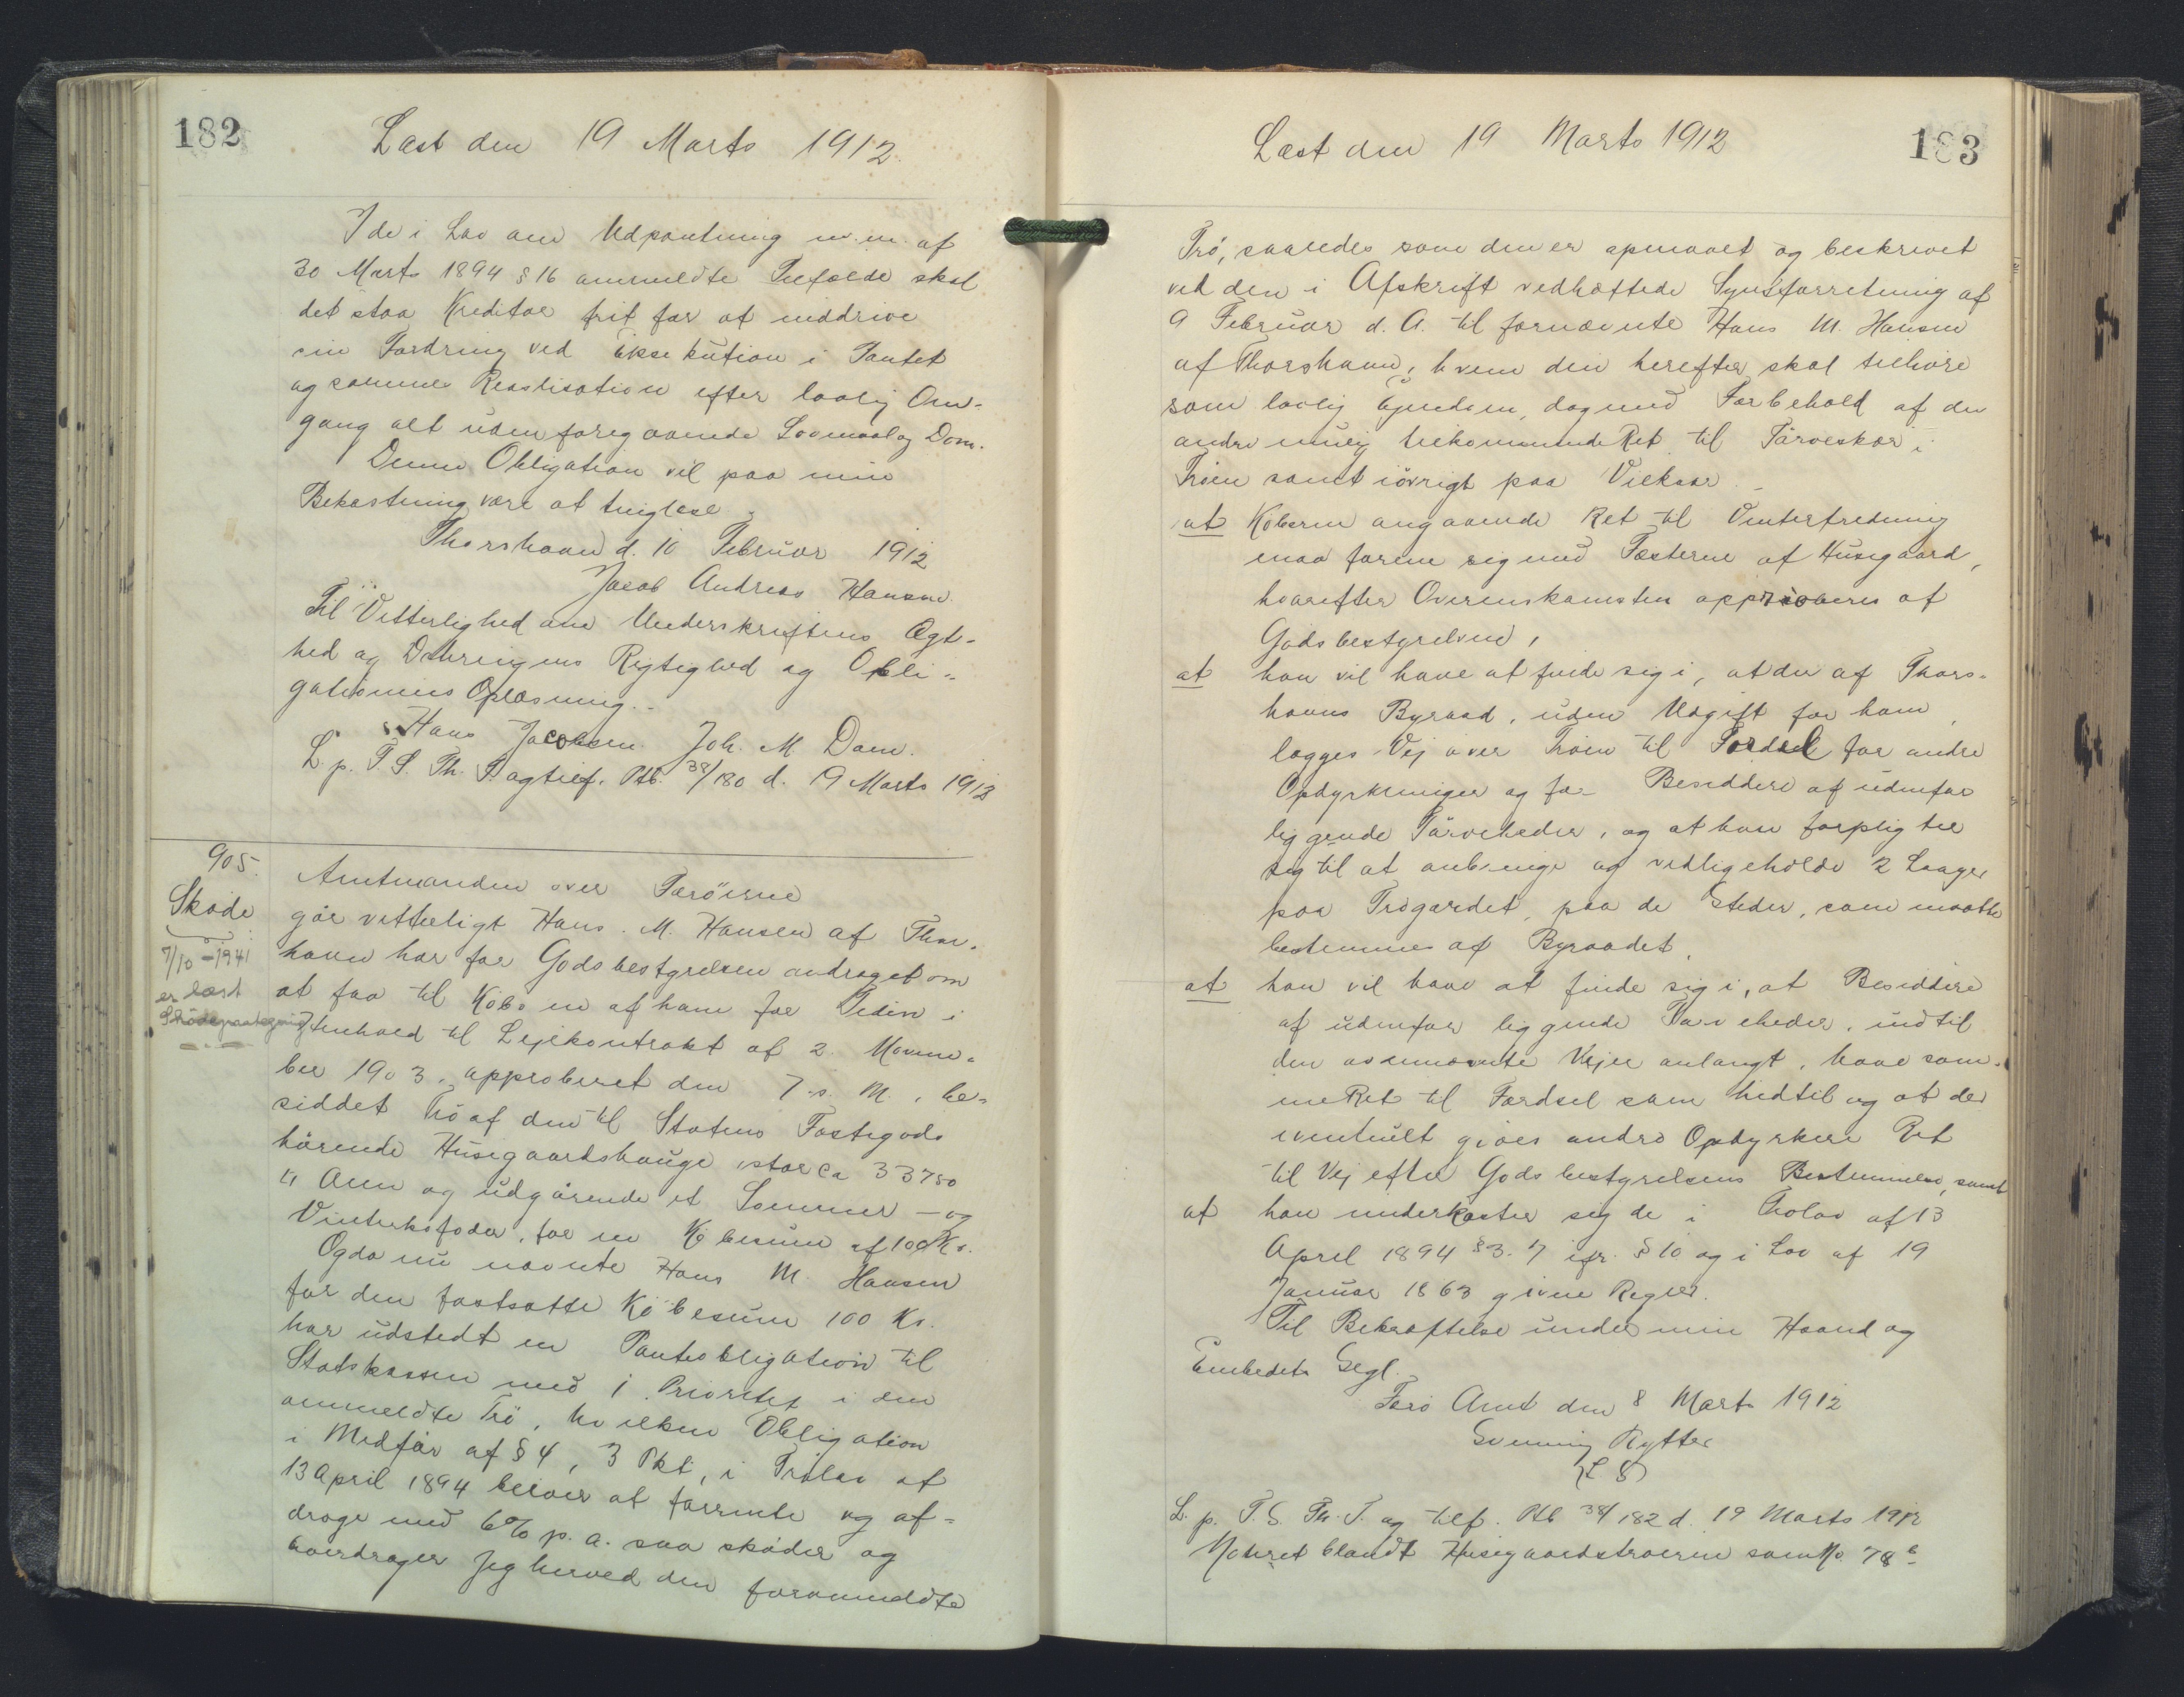 182
Læst den 19 Marts 1912.
I de i Lov om Udpantning m.m. af
30 Marts 1894 § 16 ommeldte Tilfælde skal
det staa Kreditor frit for at inddrive
sin Fordring ved Eksekution i Pantet
og sammes Realisation efter lovlig Om-
gang alt uden foregaaende Lovmaal og Dom.
Denne Obligation vil paa min
Bekostning være at tinglæse.
Thorshavn d. 10 Februar 1912
Jacob Andreas Hansen.
Til Vitterlighed om Underskriftens Ægt-
hed og Dateringens Rigtighed og Obli-
gationens Oplæsning..
Hans Jacobsen. Joh. M. Dam.
L. p. T. S. Th. T. og tilf. Ptb. 38/180 d. 19 Marts 1912
905.
Skøde
7/10 - 1941
er læst
Skødepaategning
Amtmanden over Færöerne
gör vitterligt Hans. M. Hansen af Thors-
havn har for Godsbestyrelsen andraget om
at faa til Købs en af ham for Tiden i
Henhold til Lejekontrakt af 2. Novem-
ber 1903, approberet den 7 s. M., be-
siddet Trö af den til Statens Fæstegods
hörende Husegaardshauge stor ca 33750
□ Alen og udgörende et Sommer - og
Vinterkofoder, for en Købesum af 100 Kr.
Og da nu nævnte Hans M. Hansen
for den fastsatte Köbesum 100 Kr.
har udstedt en Panteobligation til
Statskassen med 1 Prioritet i den
ommeldte Trö, hvilken Obligation
i Medför af § 4, 3 Pkt, i Trølov af
13 April 1894 bliver at forrente og af-
drage med 6% p. a. saa skøder og
overdrager jeg herved den forommeldte
Læst den 19 Marts 1912
183
Trö, saaledes som den er opmaalt og beskrevet
ved den i Afskrift vedhæftede Synsforretning af
9 Februar d. A. til fornævnte Hans M. Hansen
af Thorshavn, hvem den herefter skal tilhöre
som lovlig Ejendom, dog med Forbehold af den
andre mulig tilkommende Ret til Törveskær i
Tröen samt iövrigt paa Vilkaar.
at Köberen angaaende Ret til Vinterfredning
maa forene sig med Fæsterne af Husegaard,
hvorefter Overenskomsten approberes af
Godsbestyrelsen,
at han vil have at finde sig i, at der af Thors-
havns Byraad, uden Udgift for ham,
lægges Vej over Tröen til Færdsel for andre
Opdyrkninger og for Besiddere af udenfor
liggende Törveheder, og at han forpligter
sig til at anbringe og vedligeholde 2 Laager
paa Trøgærdet, paa de Steder, som maatte
bestemmes af Byraadet.
at han vil have at finde sig i, at Besiddere
af udenfor liggende Törveheder, indtil
den ovennævnte Vej er anlagt, have sam-
me Ret til Færdsel som hidtil og at der
eventuelt gives andre Opdyrkere Ret
til Vej efter Godsbestyrelsens Bestemmelse, samt
at han underkaster sig de i Trolov af 13
April 1894 § 3. 7 jfr. § 10 og i Lov af 19
Januar 1863 givne Regler.
Til Bekræftelse under min Haand og
Embedets Segl.
Færö Amt den 8 Marts 1912
Svenning Rytter
(L S)
L. p. T. S. Th. T. og tilf. Ptb 38/182 d. 19 Marts 1912
Noteret blandt Husegaardströerne som No. 78 b.